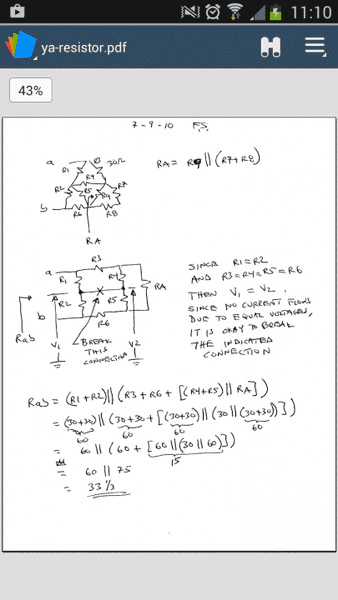 11:10
ya-resistor.pdf
43%
7-9-10 F.S.
a R3 30Ω
R1
R4
R2 R5 R9 R7
b R6 R8
RA
RA = R9 || (R7+R8)
R3
a
R1 R4
RA
R2 R5
b
R6
Rab
V1 V2
BREAK
THIS
CONNECTION
SINCE R1=R2
AND R3=R4=R5=R6
THEN V1 = V2.
SINCE NO CURRENT FLOWS
DUE TO EQUAL VOLTAGES,
IT IS OKAY TO BREAK
THE INDICATED
CONNECTION
Rab = (R1+R2) || (R3+R6+[(R4+R5) || RA])
= (30+30) || (30+30+[(30+30) || (30 || (30+30))])
60 60 60 60
= 60 || (60+[60 || (30 || 60)])
15
= 60 || 75
= 33 1/3